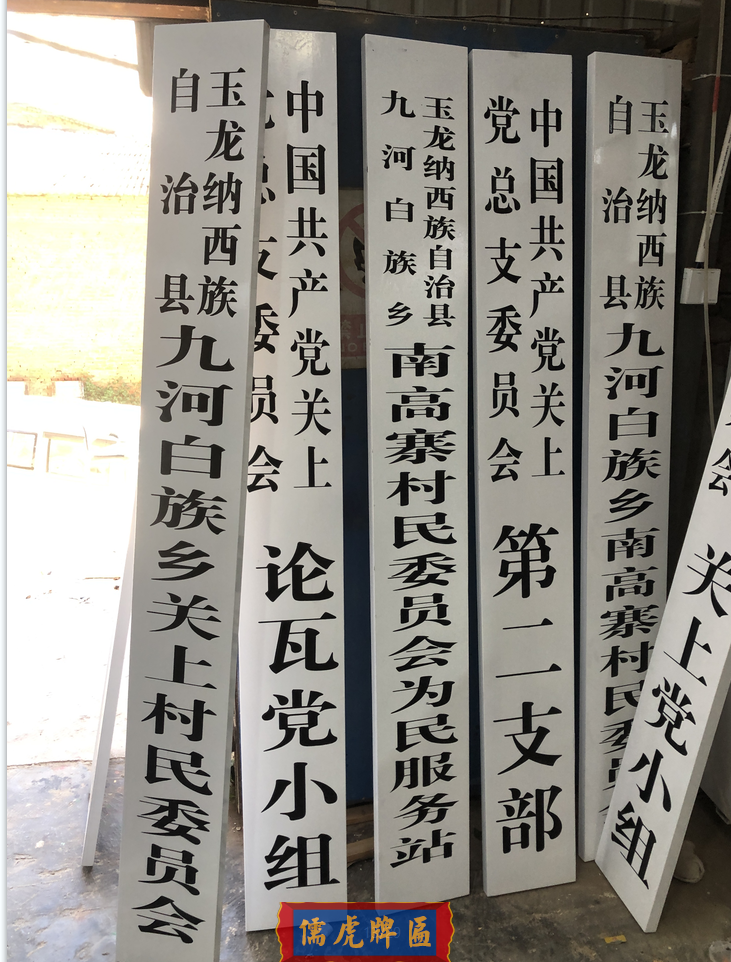 玉龙纳西族
自治县
九河白族乡关上村民委员会
中国共产党关上
总支委员会
论瓦党小组
玉龙纳西族自治县
九河白族乡
南高寨村民委员会为民服务站
中国共产党关上
党总支委员会
第二支部
玉龙纳西族
自治县
九河白族乡南高寨村民委
会
关上党小组
儒虎牌匾